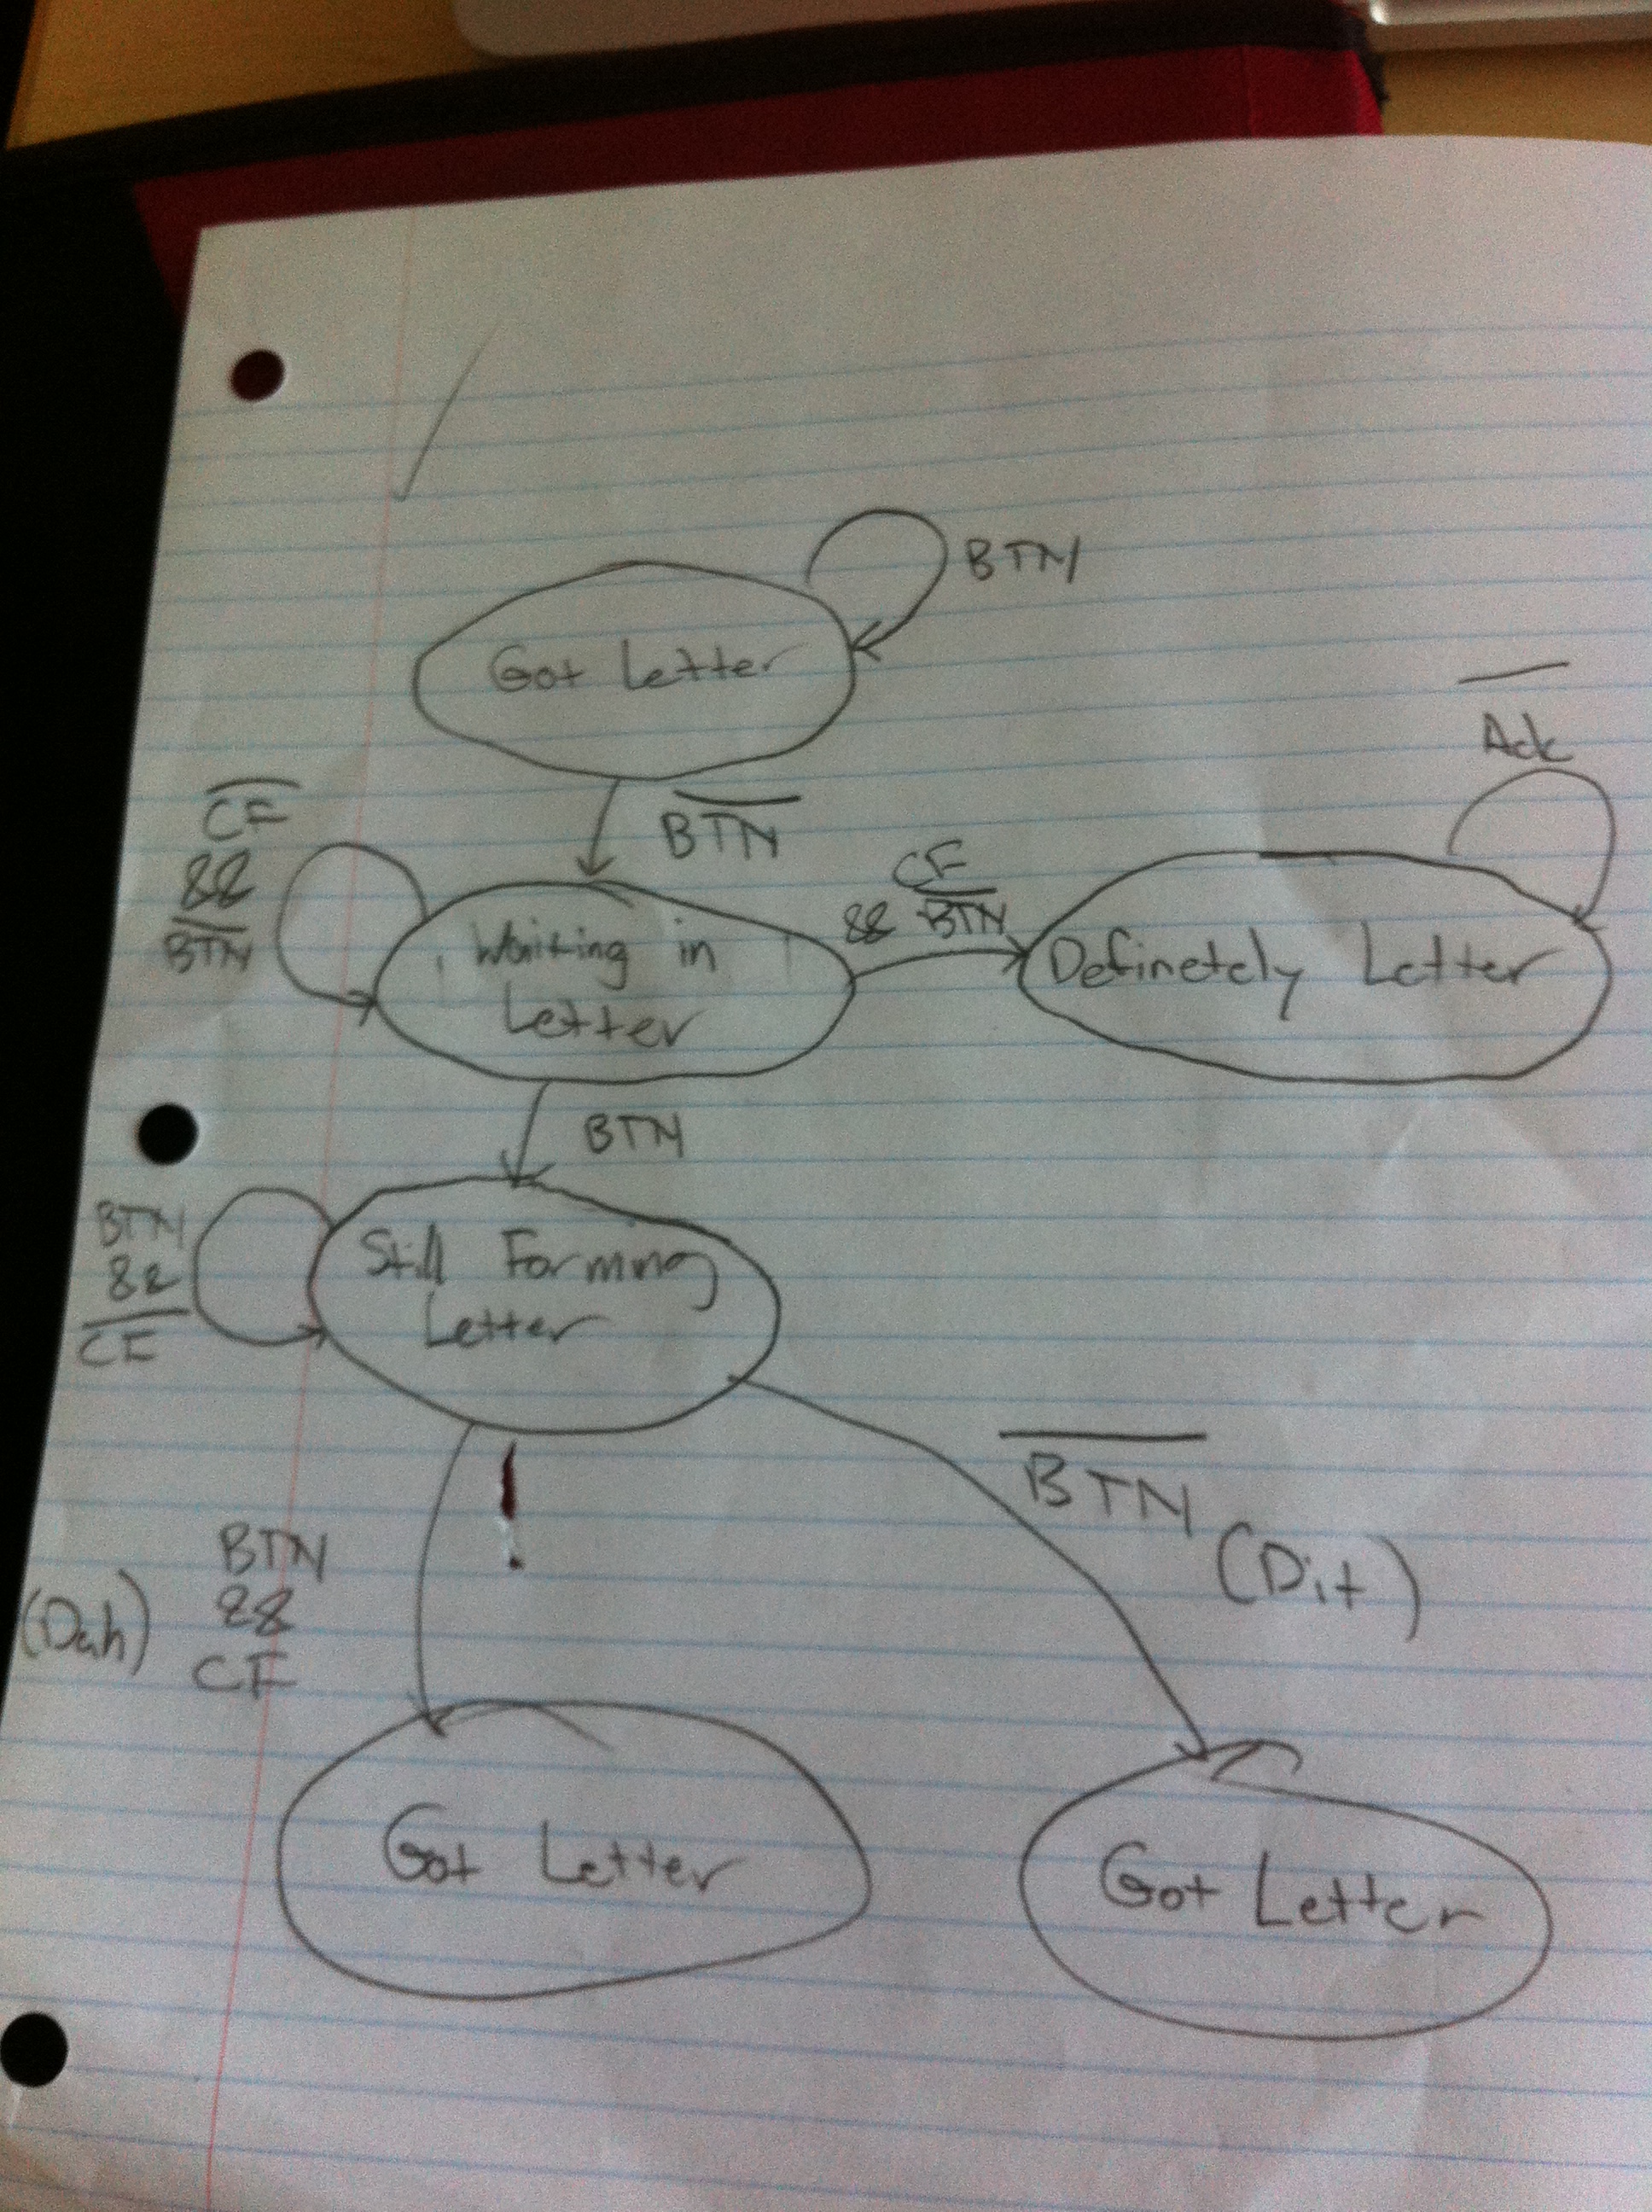 BTN
Got Letter
Ack
BTN
CF
&&
BTN
CF
&& BTN
Waiting in
Letter
Definetely Letter
BTN
BTN
&&
CF
Still Forming
Letter
BTN
(Dit)
BTN
&&
CF
(Dah)
Got Letter
Got Letter